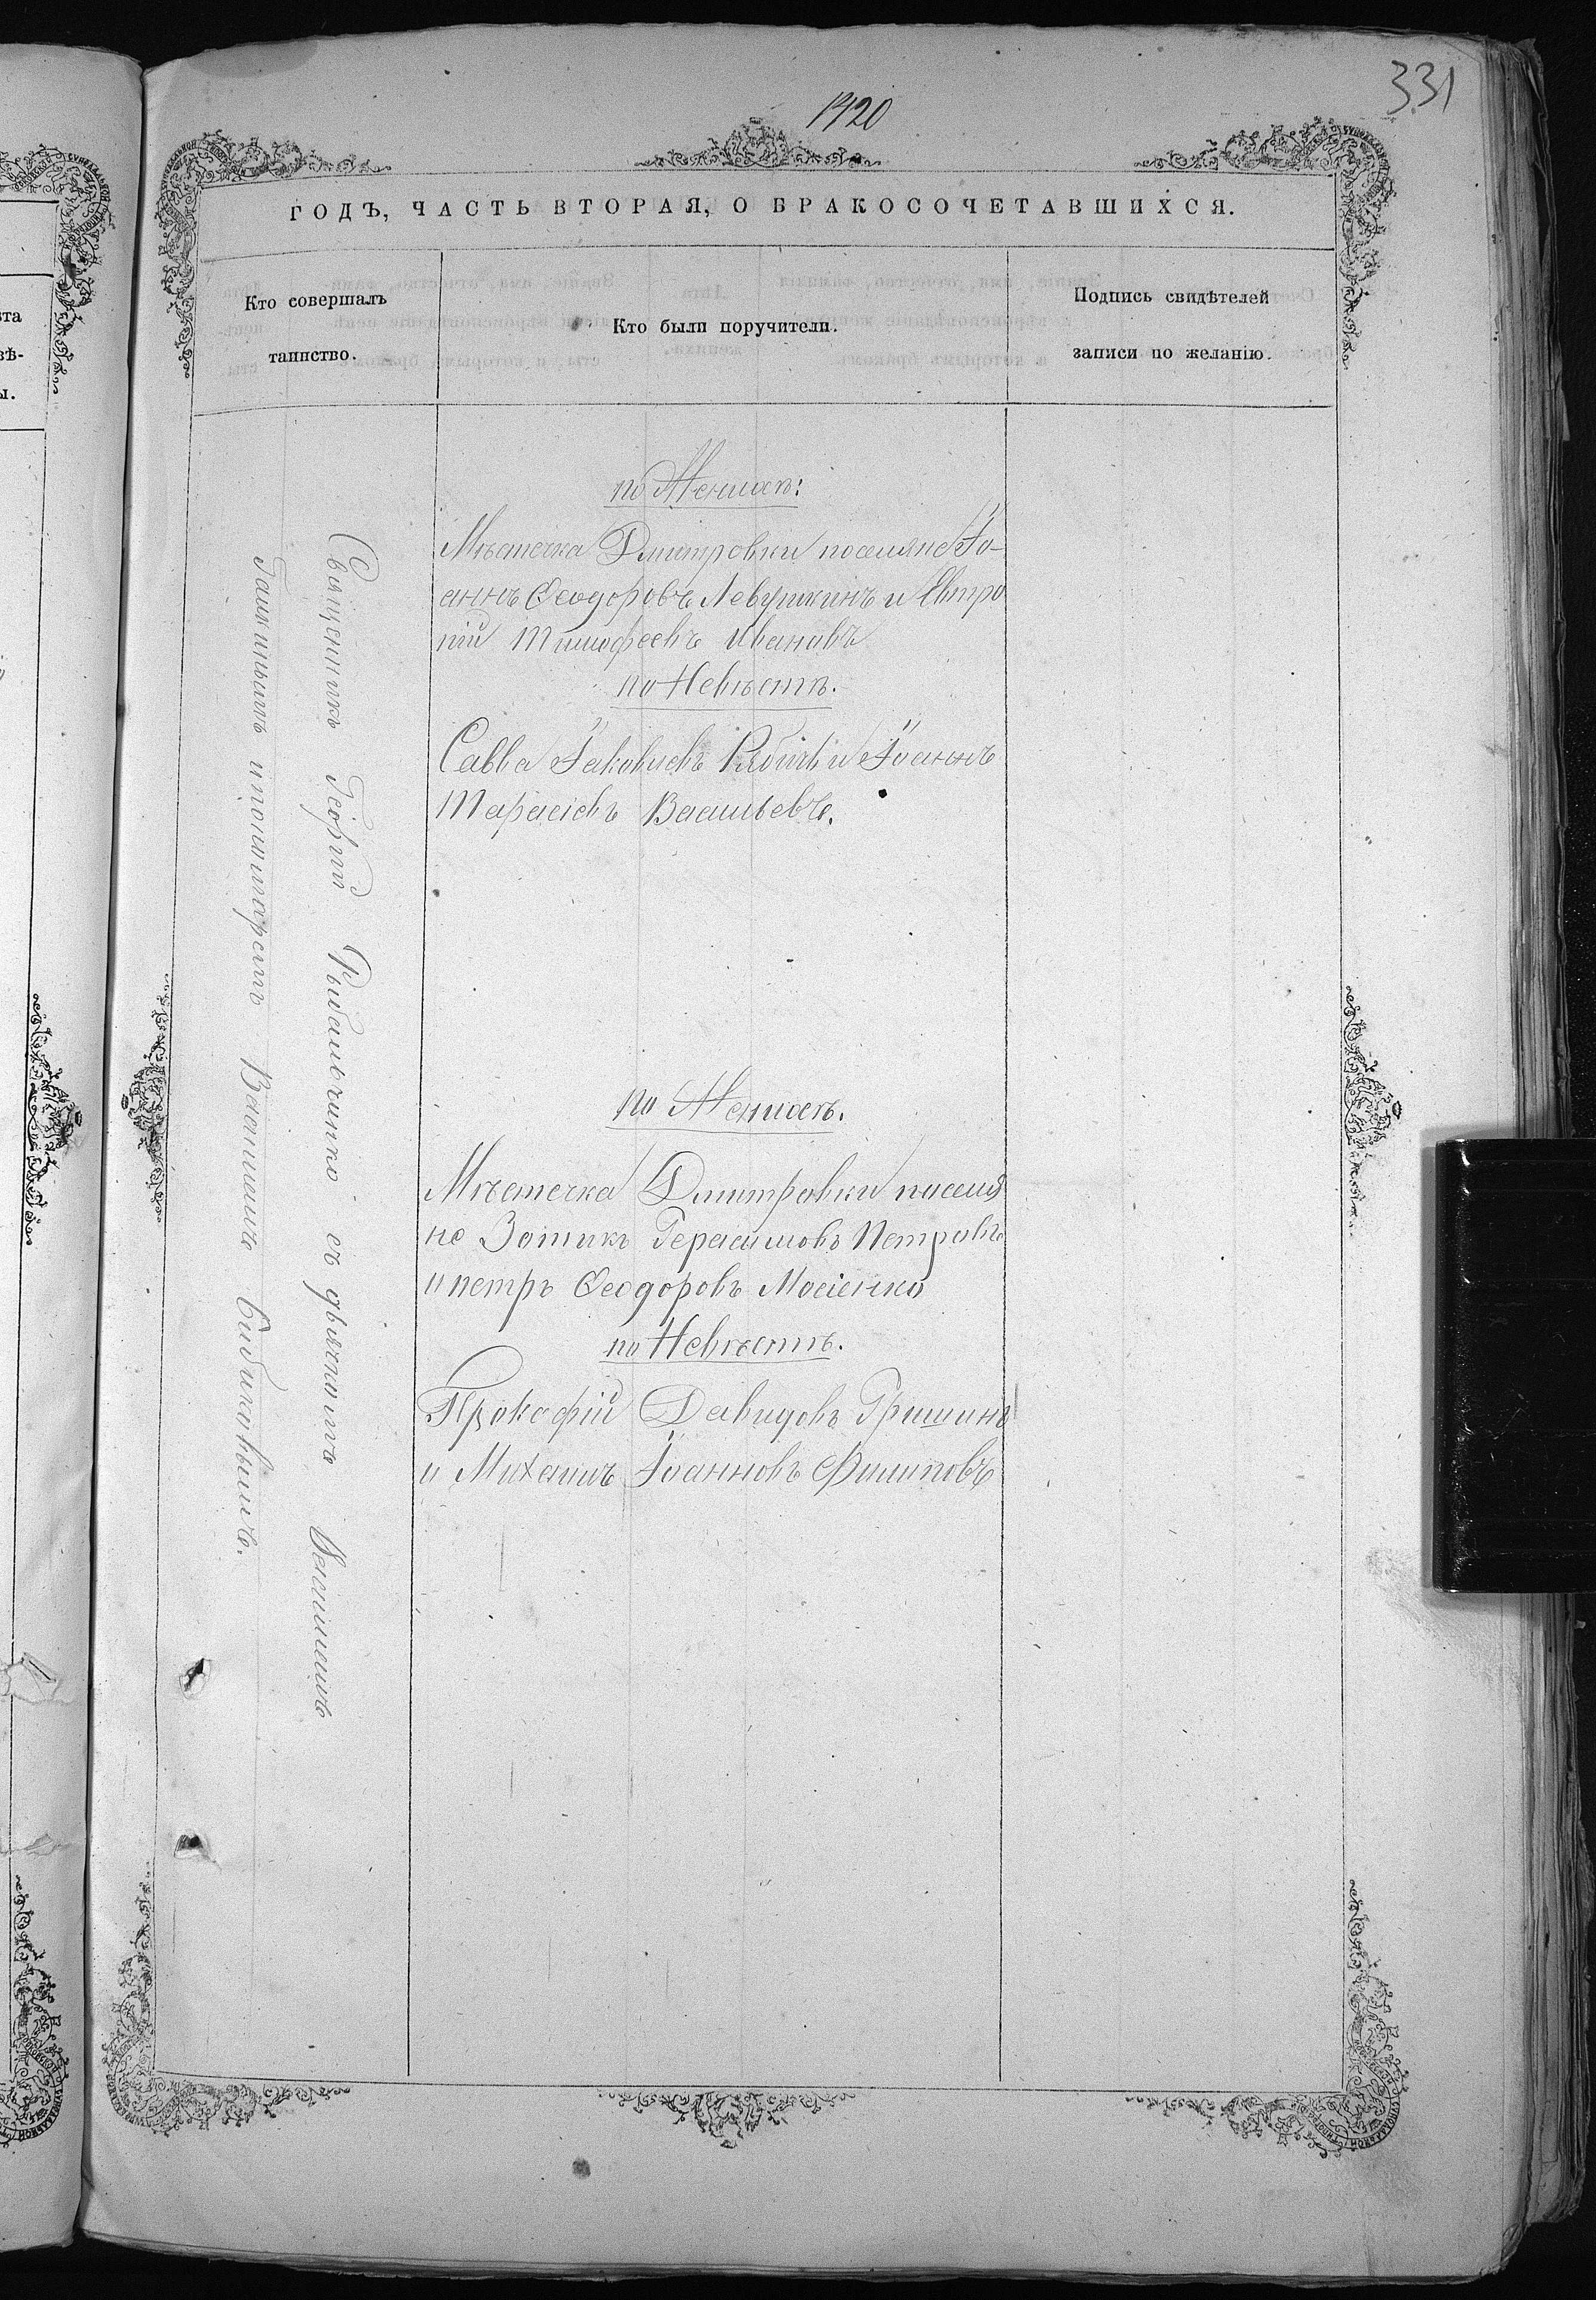 331
1420
ГОДЪ, ЧАСТЬ ВТОРАЯ, О БРАКОСОЧЕТАВШИХСЯ.
Кто совершалъ
таинство.
Кто были поручители.
Подпись свидѣтелей
записи по желанію.
Священникъ Георгій Рыбальченко съ дьячкомъ Василіемъ
и пономаремъ Василіемъ Бибиковымъ.
по Женихѣ:
Мѣстечка Дмитровки поселяне Іо-
аннъ Ѳеодоровъ Левушкинъ и Евтро
пій Тимофеевъ Ивановъ
по Невѣстѣ.
Савва Іаковлевъ и Іоаннъ
Тарасіевъ Васильевъ.
по Женихѣ.
Мѣстечка Дмитровки поселя
не Зотикъ Герасимовъ Петровъ
и петръ Ѳеодоровъ Мосіенко
по Невѣстѣ.
Прокофій Давидовъ Гришинъ
и Михаилъ Іоанновъ Филиповъ